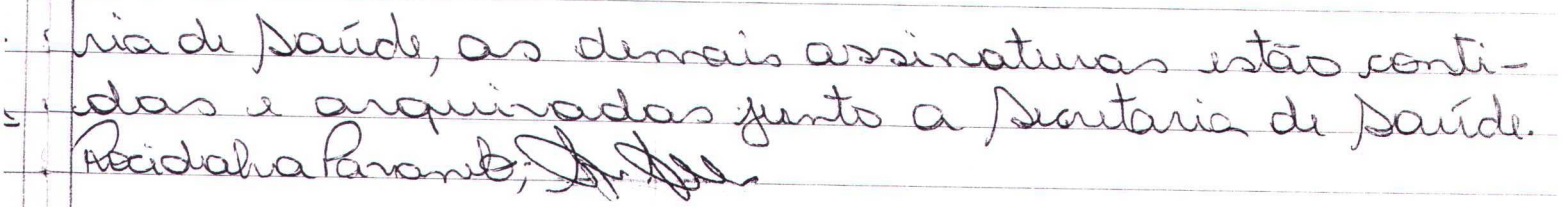 ria de Saúde, as demais assinaturas estão conti-
das e arquivadas junto a Secretaria de Saúde.